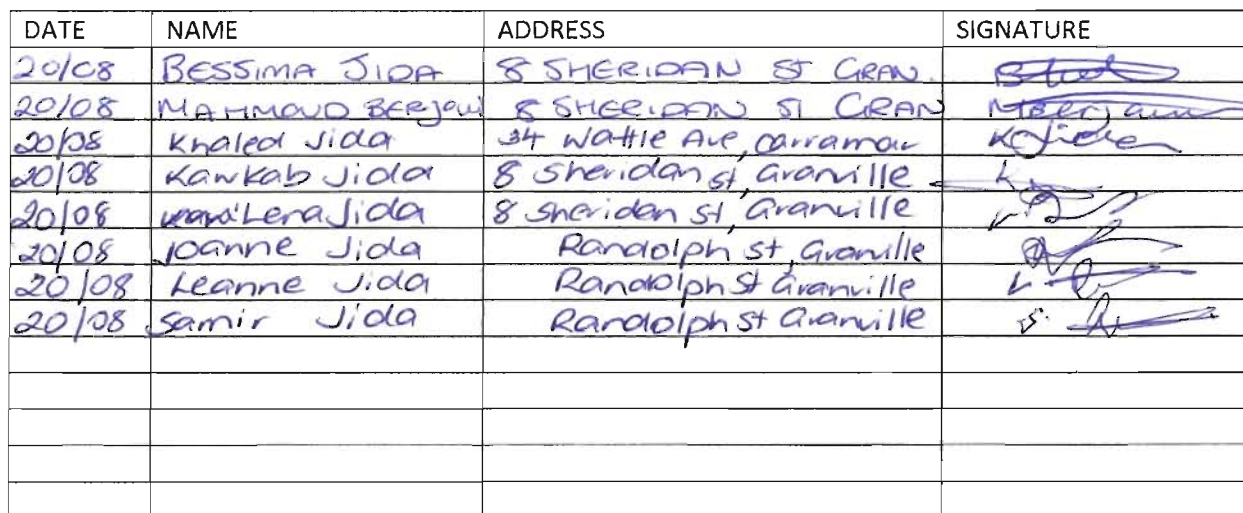 DATE NAME ADDRESS SIGNATURE
20/08 BESSIMA JIDA 8 SHERIDAN ST GRAN.
20/08 MAHMOUD BERJAUI 8 SHERIDAN ST GRAN MBerjaui
20/08 Khaled Jida 34 Wattle Ave, Carramar K Jida
20/08 Kawkab Jida 8 Sheridan st, Granville K.
20/08 Lena Jida 8 Sheridan st, Granville
20/08 Joanne Jida Randolph st, Granville
20/08 Leanne Jida Randolph st Granville L
20/08 Samir Jida Randolph st Granville S.